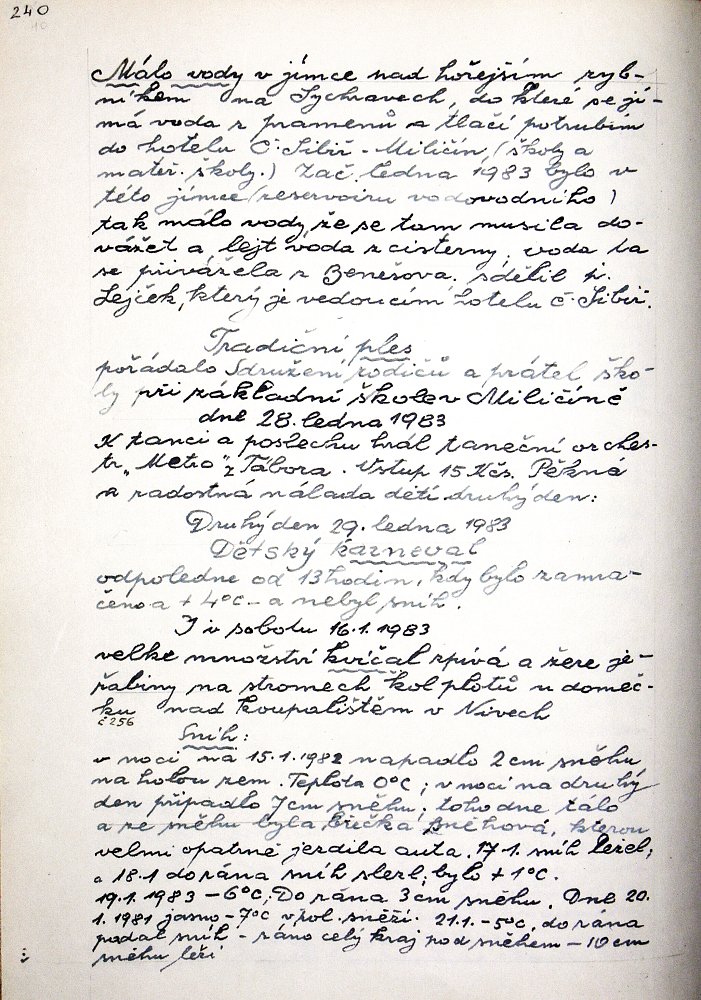 240
Málo vody v jímce nad hořejším ryb-
níkem na Sychravech, do které se jí-
má voda z pramenů a tlačí potrubím
do hotelu Č. Sibiř - Miličín (školy a
mateř. školy.) Zač. ledna 1983 bylo v
této jímce (reservoiru vodovodního)
tak málo vody, že se tam musila do-
vážet a lejt voda z cisterny, voda ta
se přivážela z Benešova. sdělil p.
Lejček, který je vedoucím hotelu Č. Sibiř.
Tradiční ples
pořádalo Sdružení rodičů a přátel ško-
ly při základní škole v Miličíně
dne 28. ledna 1983
K tanci a poslechu hrál taneční orches-
tr „Metro" z Tábora. Vstup 15 Kčs. Pěkná
a radostná nálada dětí druhý den:
Druhý den 29. ledna 1983
Dětský karneval
odpoledne od 13 hodin, kdy bylo zamra-
čeno a + 4°C - a nebyl sníh.
I v sobotu 16.1.1983
velké množství kvíčal zpívá a žere je-
řabiny na stromech kol plotů u domeč-
ku nad koupalištěm v Nivech
č 256
Sníh:
v noci na 15.1.1982 napadlo 2 cm sněhu
na holou zem. Teplota 0°C; v noci na druhý
den připadlo 7 cm sněhu; toho dne tálo
a ze sněhu byla břečka sněhová, kterou
velmi opatrně jezdila auta. 17.1. sníh ležel;
a 18.1 do rána sníh slezl; bylo + 1°C.
19.1.1983 - 6°C; Do rána 3 cm sněhu. Dne 20.
1.1981 jasno - 7°C v pol. sněží. 21.1. - 5°C, do rána
padal sníh - ráno celý kraj pod sněhem - 10 cm
sněhu leží